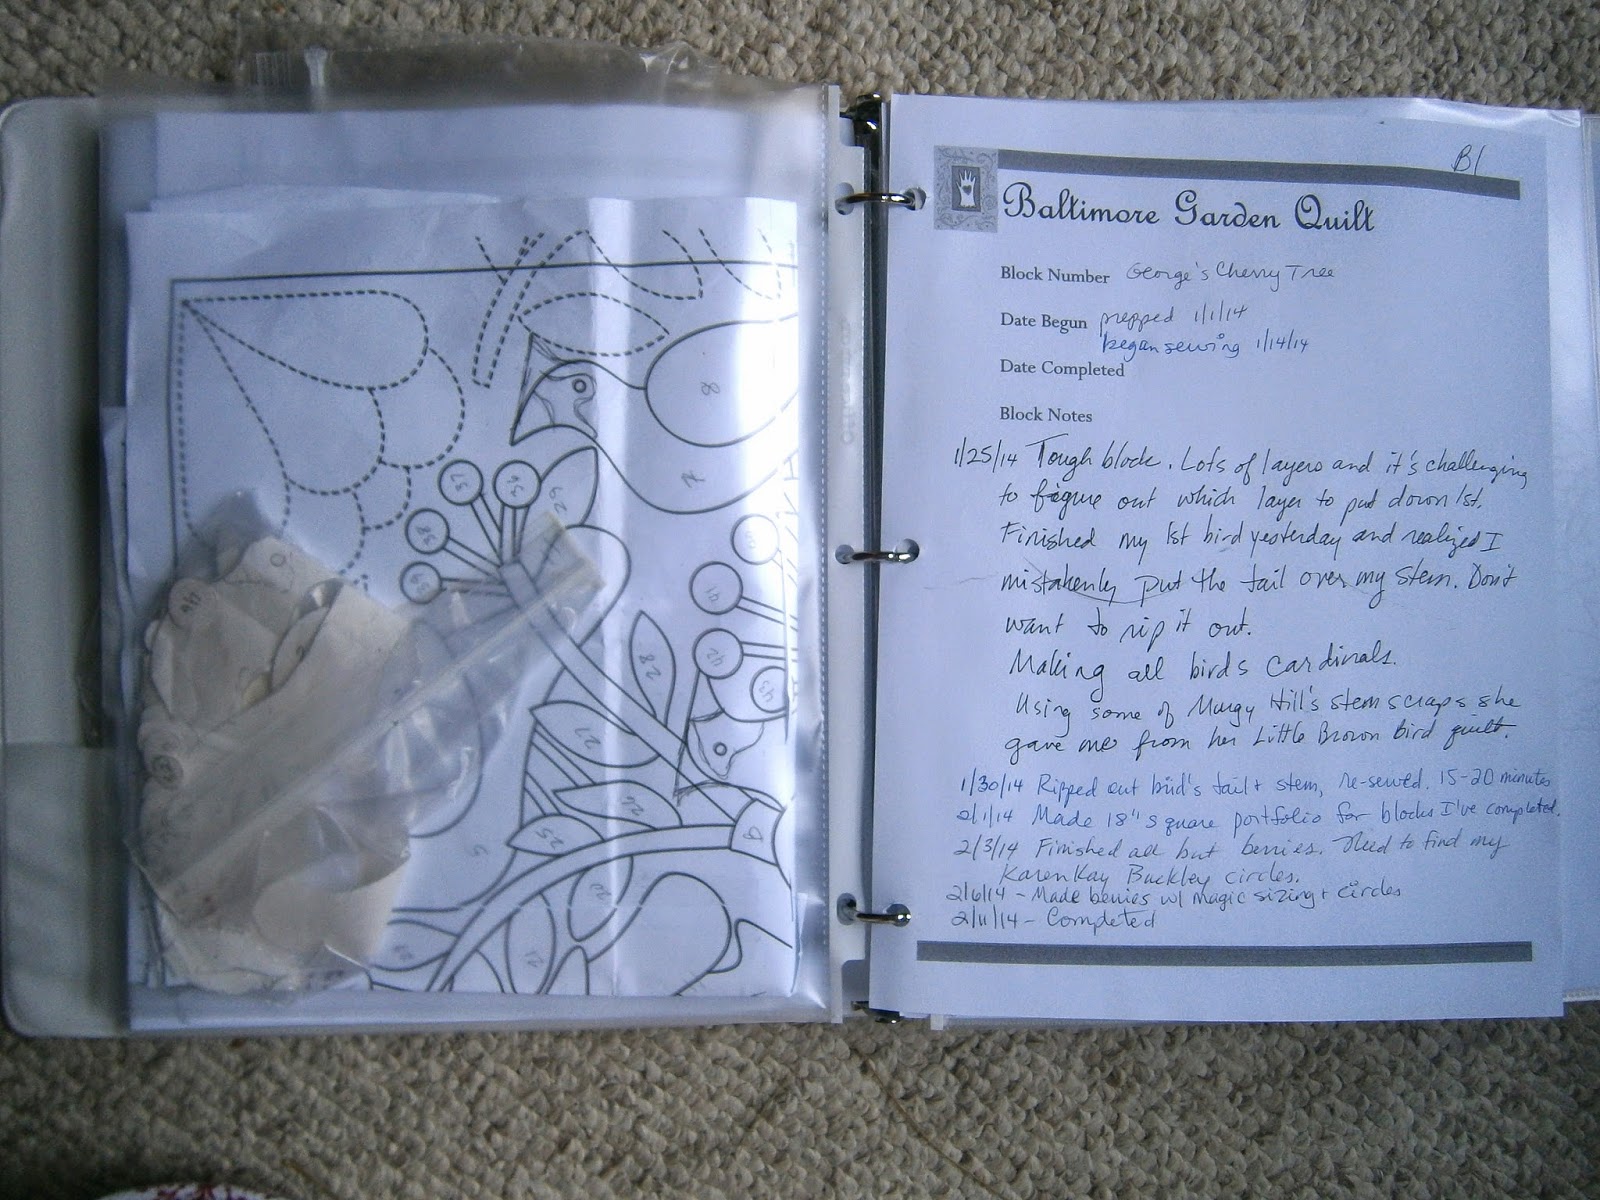 B1
Baltimore Garden Quilt
Block Number George's Cherry Tree
Date Begun prepped 1/1/14
began sewing 1/14/14
Date Completed
Block Notes
1/25/14 Tough block. Lots of layers and it's challenging
to figure out which layer to put down 1st.
Finished my 1st bird yesterday and realized I
mistakenly put the tail over my stem. Don't
want to rip it out.
Making all birds cardinals.
Using some of Margy Hill's stem scraps she
gave me from her Little Brown Bird quilt.
1/30/14 Ripped out bird's tail + stem, re-sewed. 15-20 minutes
2/1/14 Made 18" square portfolio for blocks I've completed.
2/3/14 Finished all but berries. Need to find my
Karen Kay Buckley circles.
2/6/14 - Made berries w/ magic sizing + circles
2/11/14 - Completed
8
7
37
36
29
38
39
41
42
43
28
27
26
25
9
5
21
46